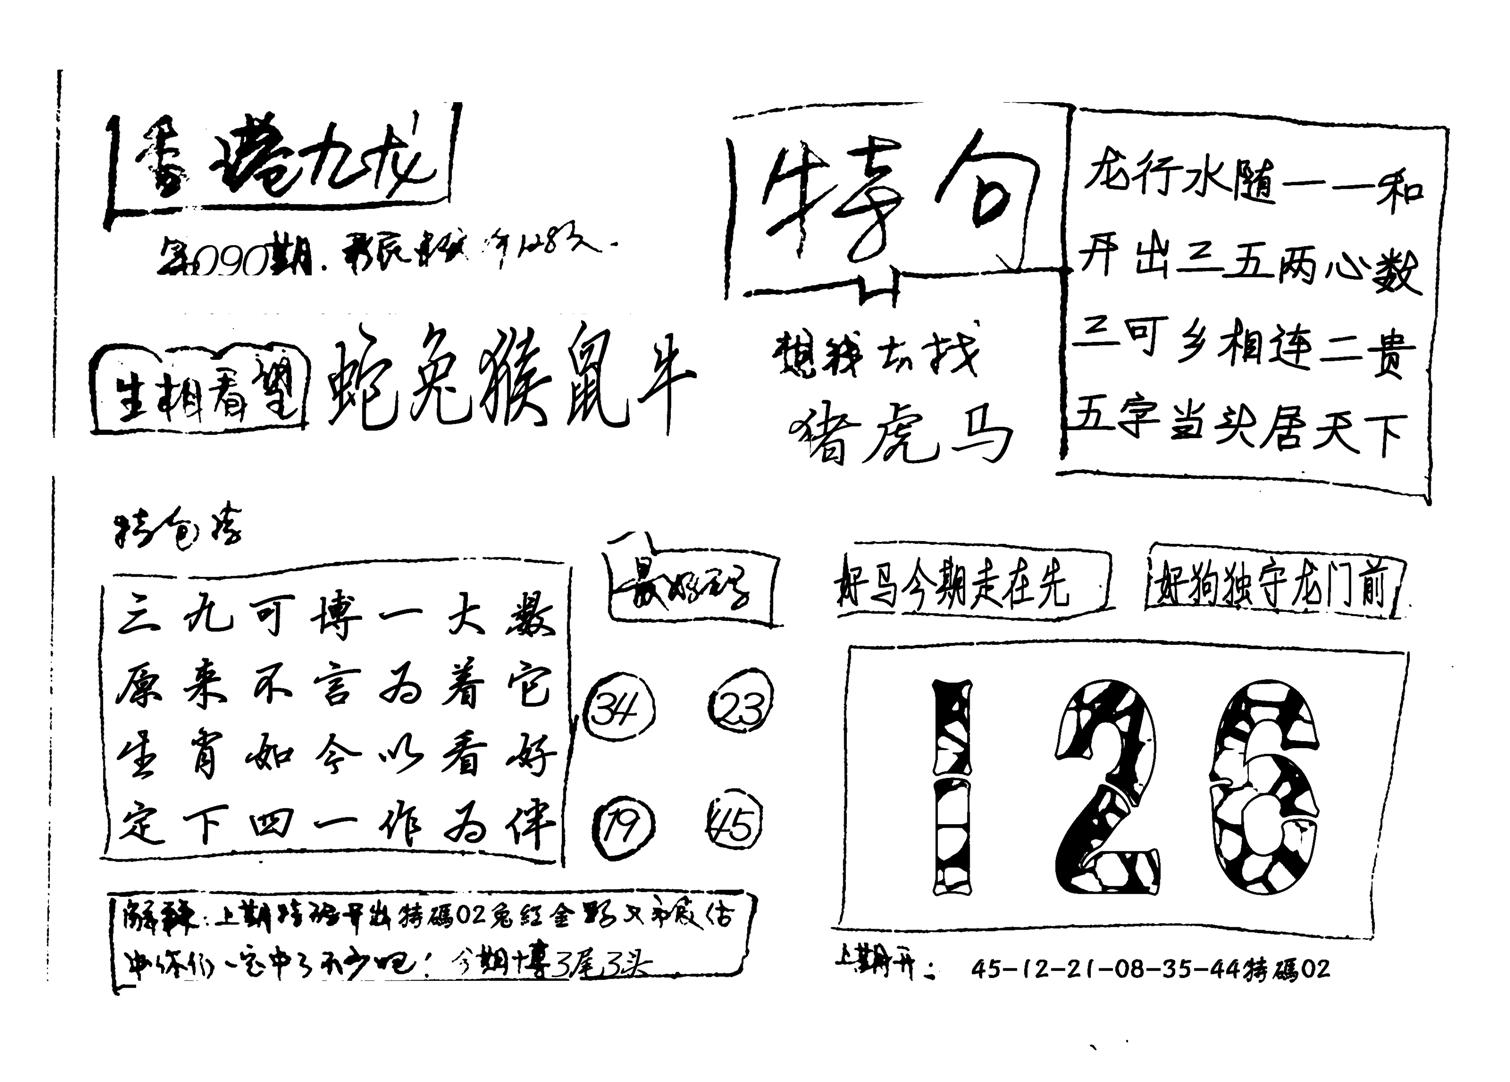 香港九龙
第090期.
生相看望
蛇兔猴鼠牛
特句
龙行水随一一和
开出三五两心数
三可乡相连二贵
五字当头居天下
想我去找
猪虎马
特包 
三九可博一大数
原来不言为着它
生肖如今以看好
定下四一作为伴
最好码
34 23
19 45
好马今期走在先
好狗独守龙门前
126
解释:上期特码开出特碼02兔红金
你们一定中了不少吧!今期博3尾3头
上期开: 45-12-21-08-35-44特碼02